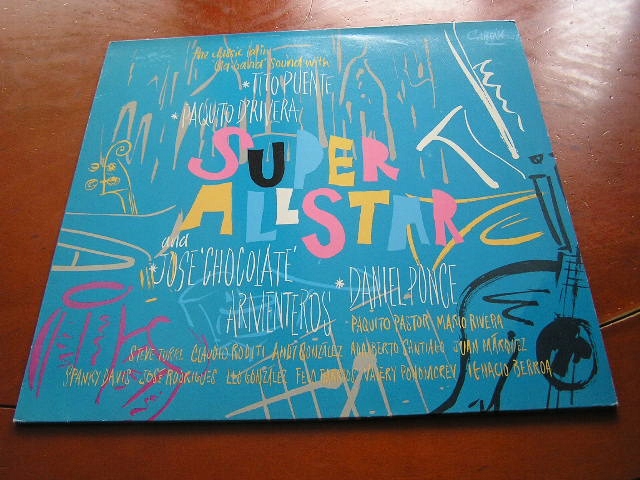 the classic latin
big band sound with
*TITO PUENTE
*PAQUITO D'RIVERA
SUPER
ALL STAR
and
*JOSE 'CHOCOLATE'
ARMENTEROS
*DANIEL PONCE
PAQUITO PASTOR MARIO RIVERA
STEVE TURRE CLAUDIO RODITI ANDY GONZÁLEZ ADALBERTO SANTIAGO JUAN MÁRQUEZ
SPANKY DAVIS JOSE RODRIGUES LEO GONZÁLEZ VALERY PONOMOREV IGNACIO BERROA